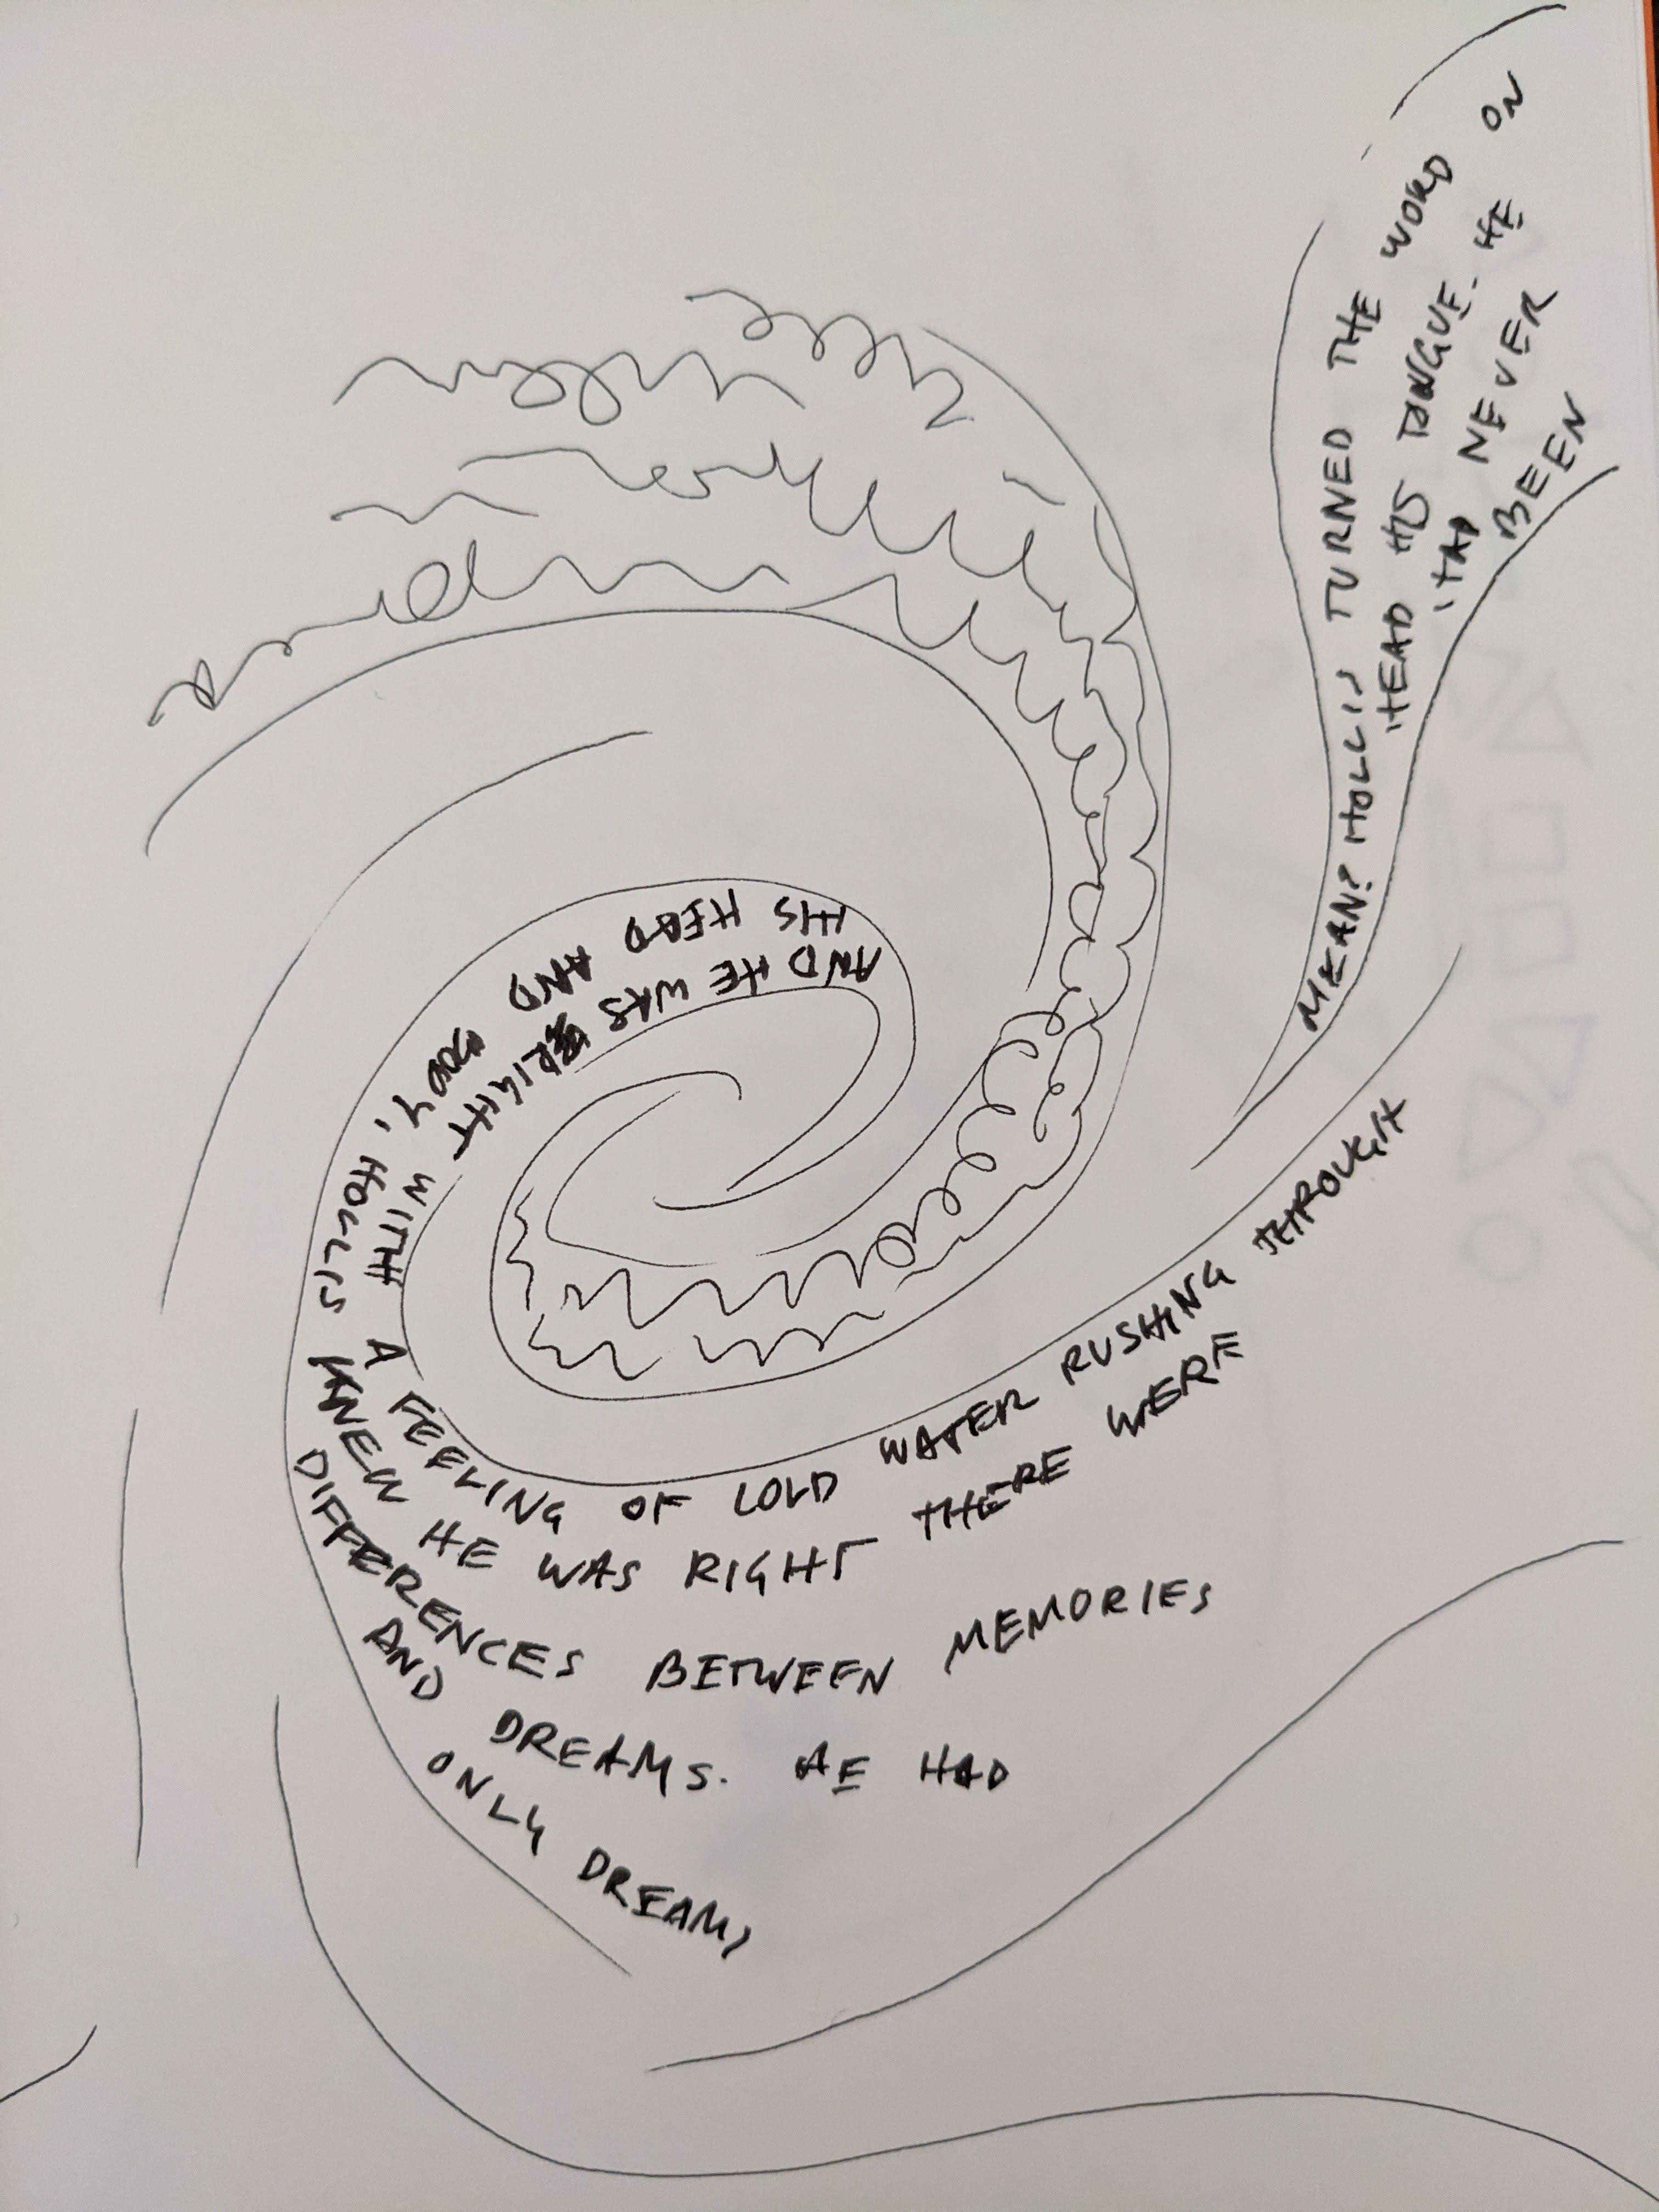 AND HE WAS RIGHT WITH A FEELING OF COLD WATER RUSHING THROUGH
HIS HEAD AND BODY, HOLLIS KNEW HE WAS RIGHT THERE WERE
DIFFERENCES BETWEEN MEMORIES
AND DREAMS. HE HAD
ONLY DREAMS
MEAN? HOLLIS TURNED THE WORD ON
HEAD HIS TONGUE. HE
HAD NEVER
BEEN